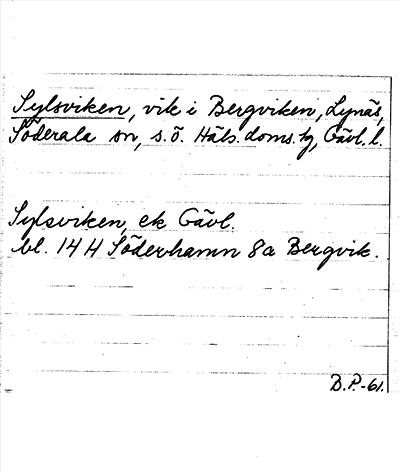 Sylsviken, vik i Bergviken, Lynäs,
Söderala sn, s.ö. Häls. doms. tg, Gävl. l.
Sylsviken, ek Gävl.
bl. 14 H Söderhamn 8a Bergvik.
B.P.-61.